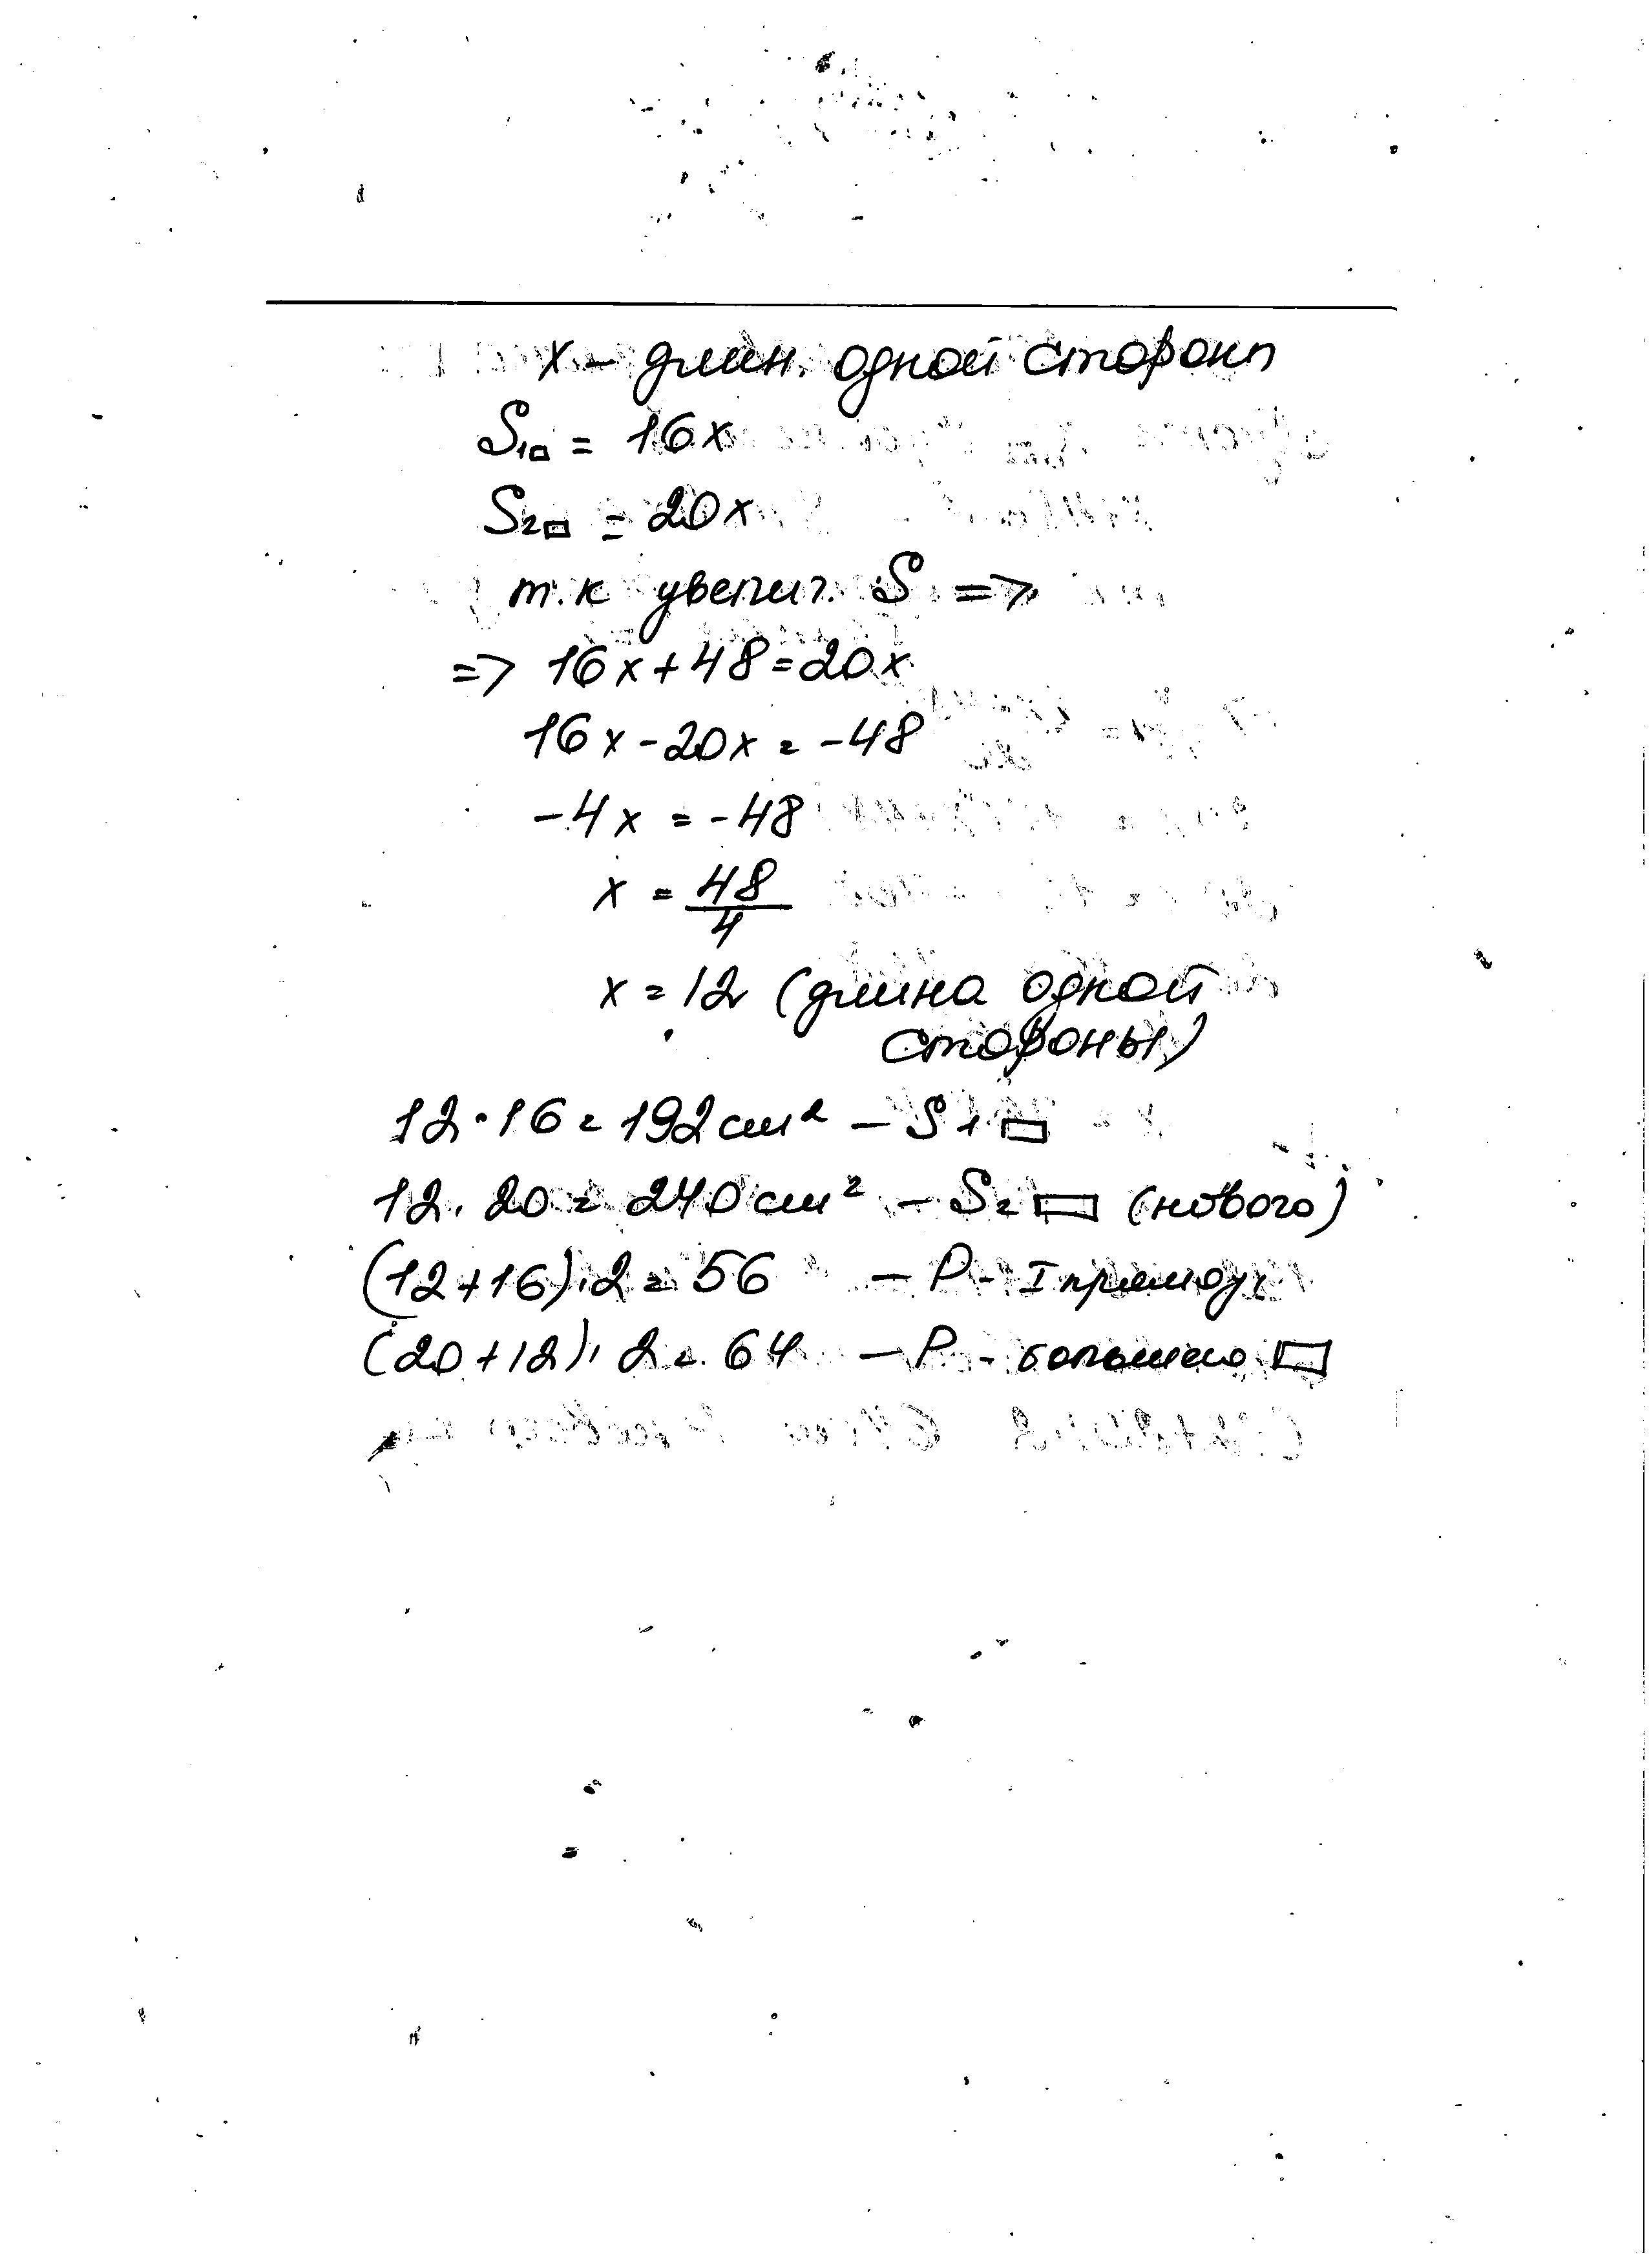 x - длин. одной стороны
S₁▭ = 16x
S₂▭ = 20x
т.к увелич. S =>
=> 16x+48=20x
16x-20x=-48
-4x=-48
x=48/4
x=12 (длина одной
стороны)
12·16=192см² - S1▭
12·20=240см² - S₂▭ (нового)
(12+16)·2=56 - P- I прямоуг.
(20+12)·2=64 - P- большого ▭